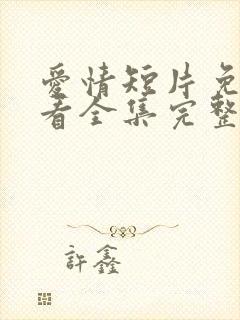 爱情短片免
看全集完整
許鑫